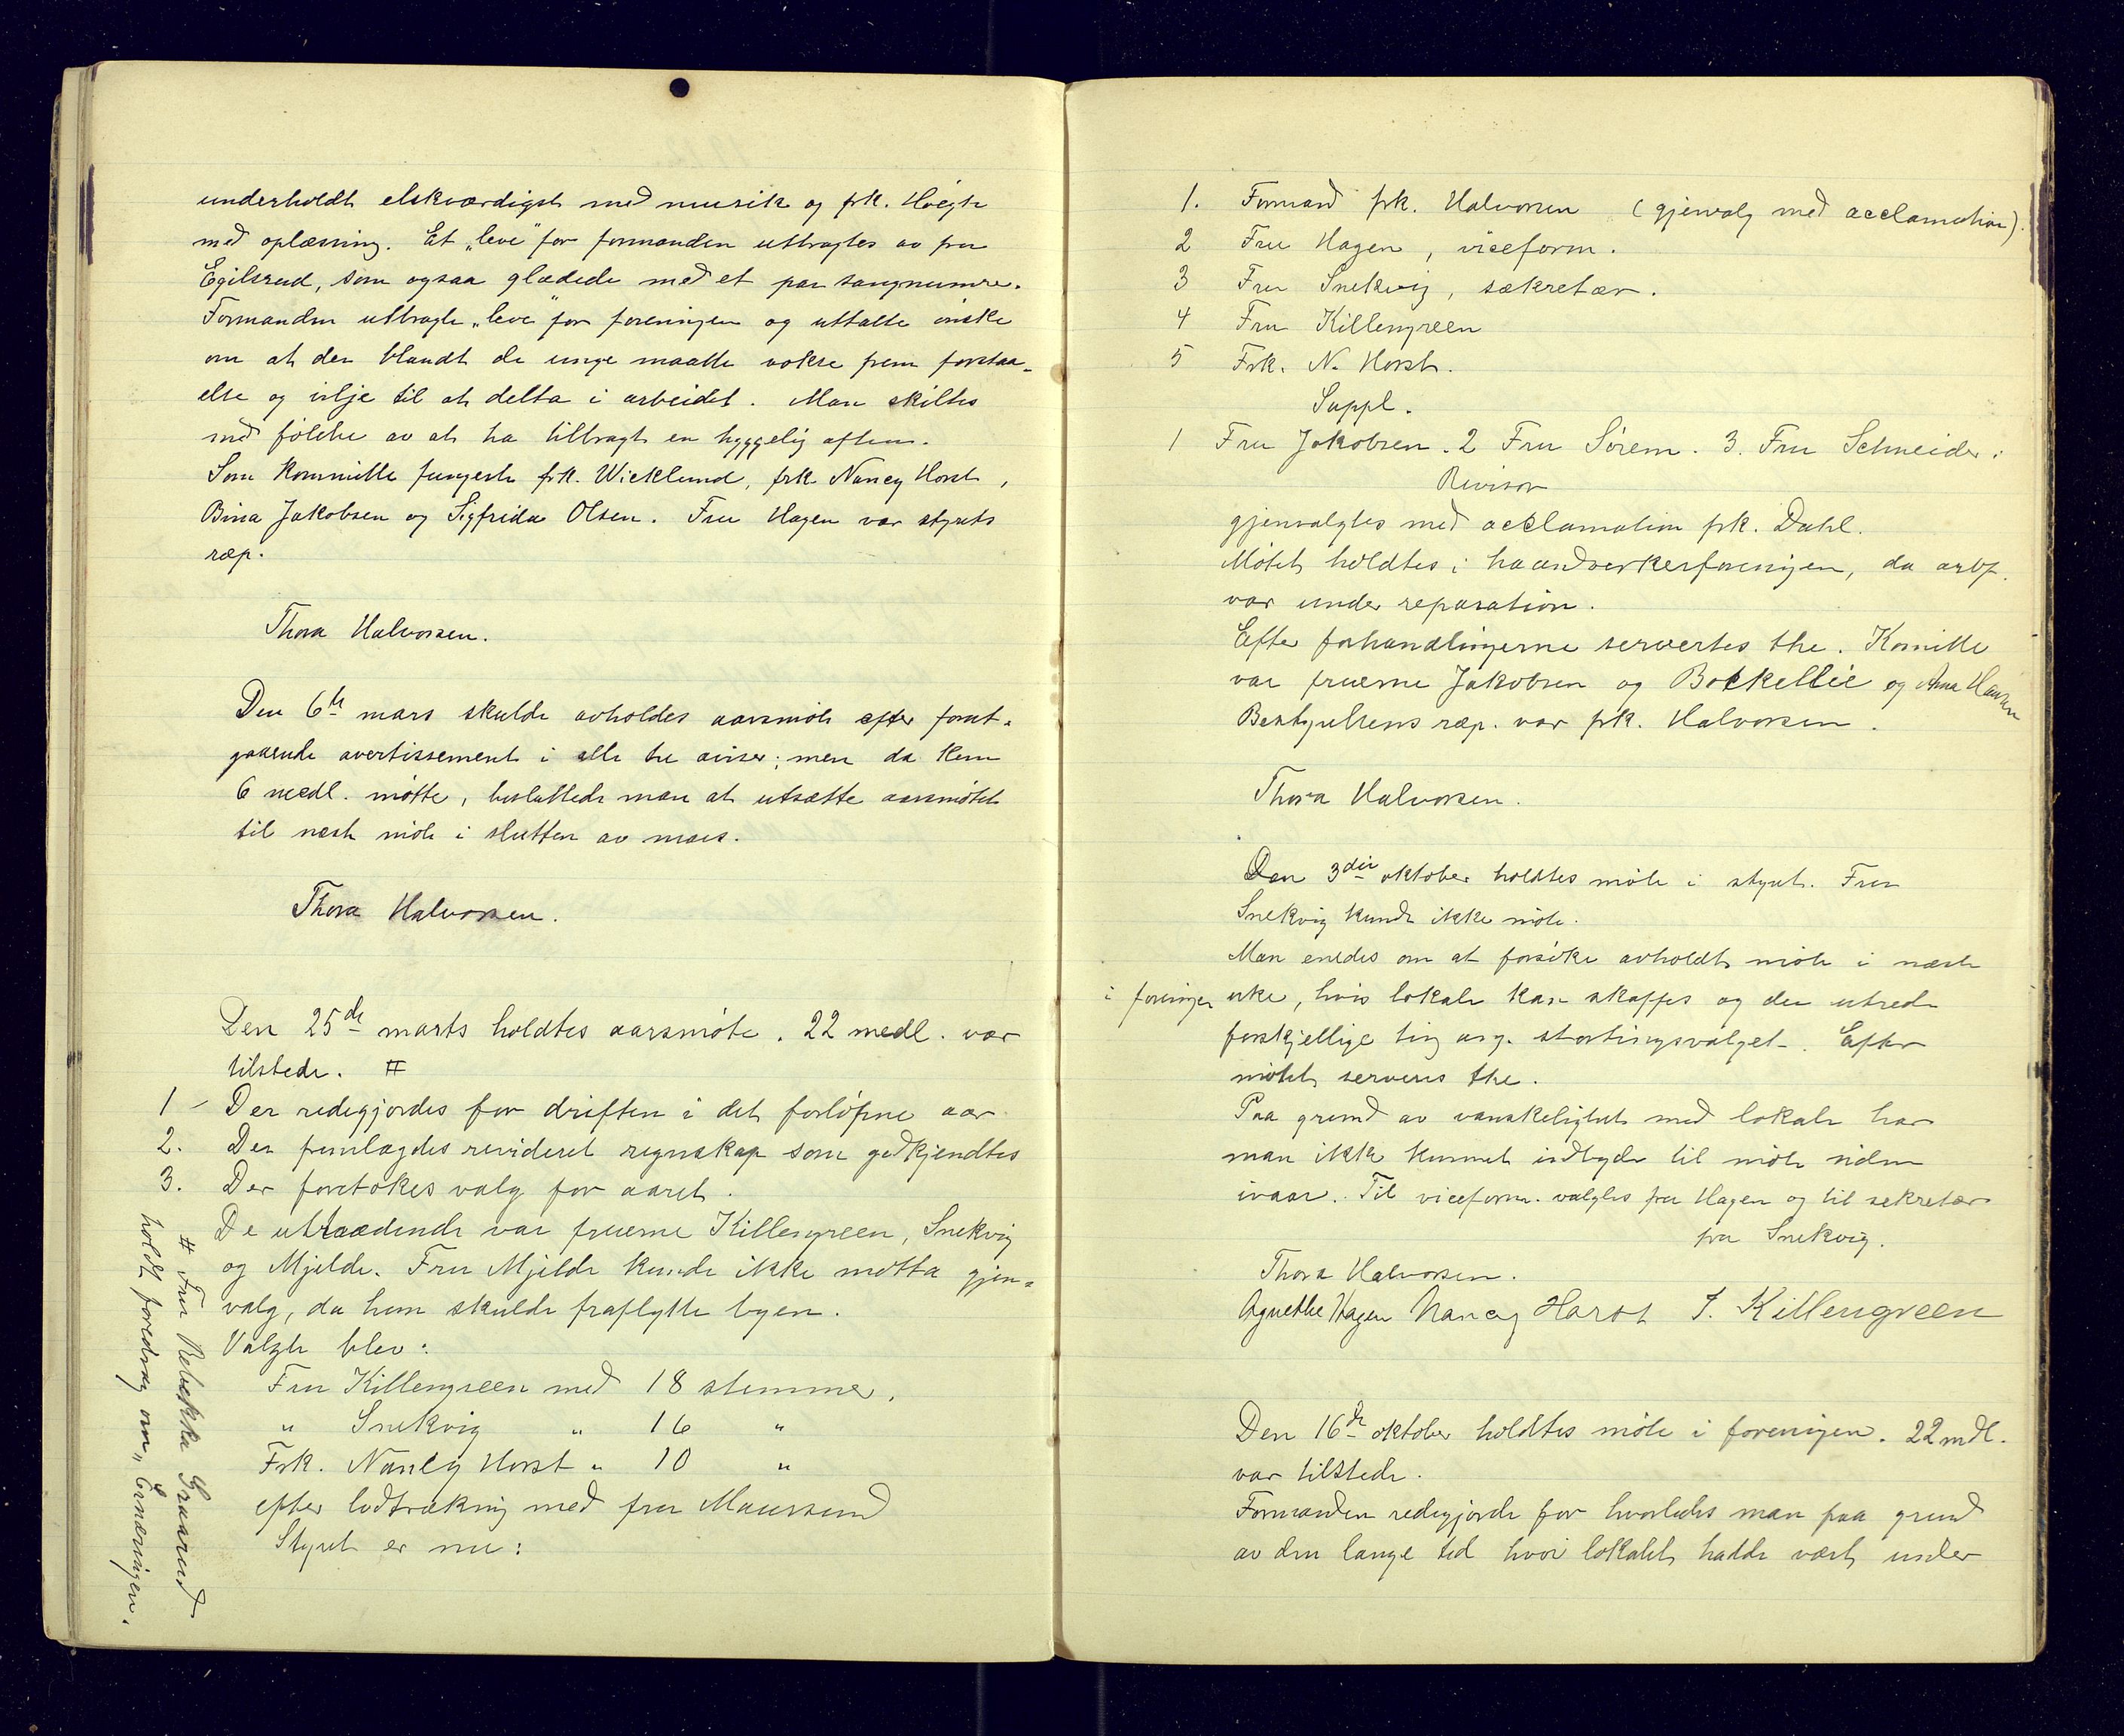 underholdt elskværdigst med musik og frk. Høegh
med oplæsning. Et „leve" for formanden utbragtes av fru
Egilsrud, som ogsaa glædede med et par sangnumre.
Formanden utbragte „leve" for foreningen og uttalte ønske
om at der blandt de unge maatte vokse frem forstaa-
else og vilje til at delta i arbeidet. Man skiltes
med følelse av at ha tilbragt en hyggelig aften.
Som kommitte fungerte frk. Wicklund, frk Nancy Horst,
Bina Jakobsen og Sigfrida Olsen. Fru Hagen var styrets
ræp.
Thora Halvorsen.
Den 6te mars skulde avholdes aarsmøte efter forut-
gaaende avertissement i alle tre aviser; men da kun
6 medl. møtte, besluttede man at utsætte aarsmøtet
til næste møte i slutten av mars.
Thora Halvorsen.
Den 25de marts holdtes aarsmøte. 22 medl. var
tilstede. #
1 - Der redegjordes for driften i det forløpne aar
2. Der fremlagdes revideret regnskap som godkjendtes
3. Der foretokes valg for aaret.
De uttraædende var fruerne Killengreen, Snekvig
og Mjelde. Fru Mjelde kunde ikke motta gjen-
valg, da hun skulde fraflytte byen.
Valgte blev:
Fru Killengreen med 18 stemmer.
" Snekvig " 16 "
Frk. Nancy Horst " 10 "
efter lodtrækning med fru Maursund
Styret er nu:
# Fru Rebekka Graarud
holdt foredrag om „Ernæringen.
1. Formand frk. Halvorsen (gjenvalg med acclamation).
2 Fru Hagen, viceform.
3 Fru Snekvig, sækretær.
4 Fru Killengreen
5 Frk. N. Horst.
Suppl.
1 Fru Jakobsen. 2 Fru Sørem. 3. Fru Schneider.
Revisor
gjenvalgtes med acclamation frk. Dahl.
Møtet holdtes i haandverkerforeningen, da arbf.
var under reparation.
Efter forhandlingerne servertes the. Komitte
var fruerne Jakobsen og Bockelie og Anna Hansen
Bestyrelsens ræp. var frk. Halvorsen.
Thora Halvorsen.
Den 3die oktober holdtes møte i styret. Fru
Snekvig kunde ikke møte.
Man enedes om at forsøke avholdt møte i næste
i foreningen uke, hvis lokale kan skaffes og der utrede
forskjellige ting ang. stortingsvalget. Efter
møtet serveres the.
Paa grund av vanskelighet med lokale har
man ikke kunnet indbyde til møte siden
ivaar. Til viceform. valgtes fru Hagen og til sekretær
fru Snekvig.
Thora Halvorsen.
Agnethe Hagen Nancy Horst I. Killengreen
Den 16de oktober holdtes møte i foreningen. 22 mdl.
var tilstede.
Formanden redegjorde for hvorledes man paa grund
av den lange tid hvori lokalet hadde været under